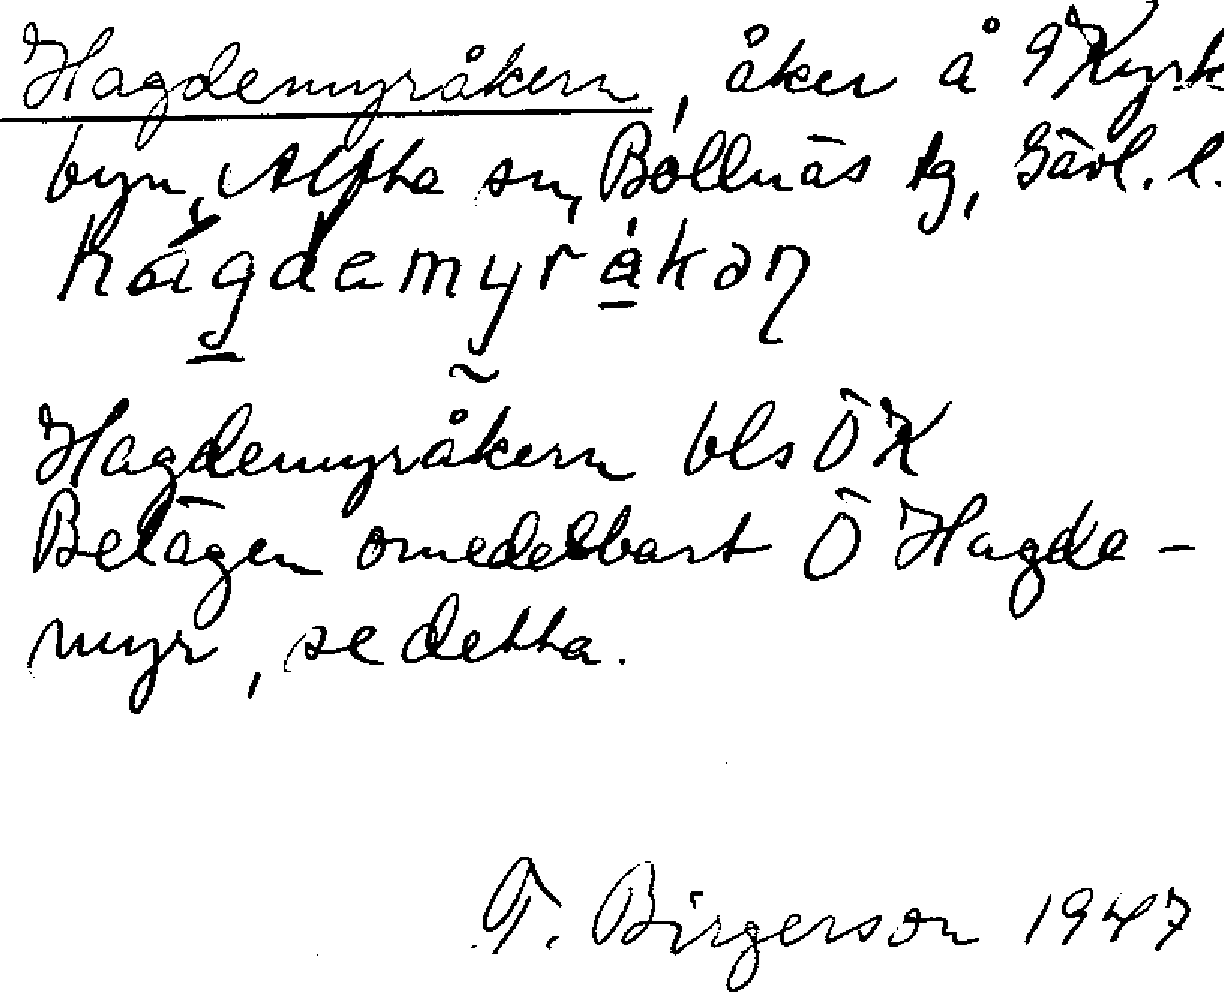 Hagdemyråkern, åker å 9 Kyrk
byn, Alfta sn, Bollnäs tg, Gävl. l.
hágdemyråkəɳ
Hagdemyråkern bls Ö K
Belägen omedelbart Ö Hagde-
myr, se detta.
T. Birgerson 1947